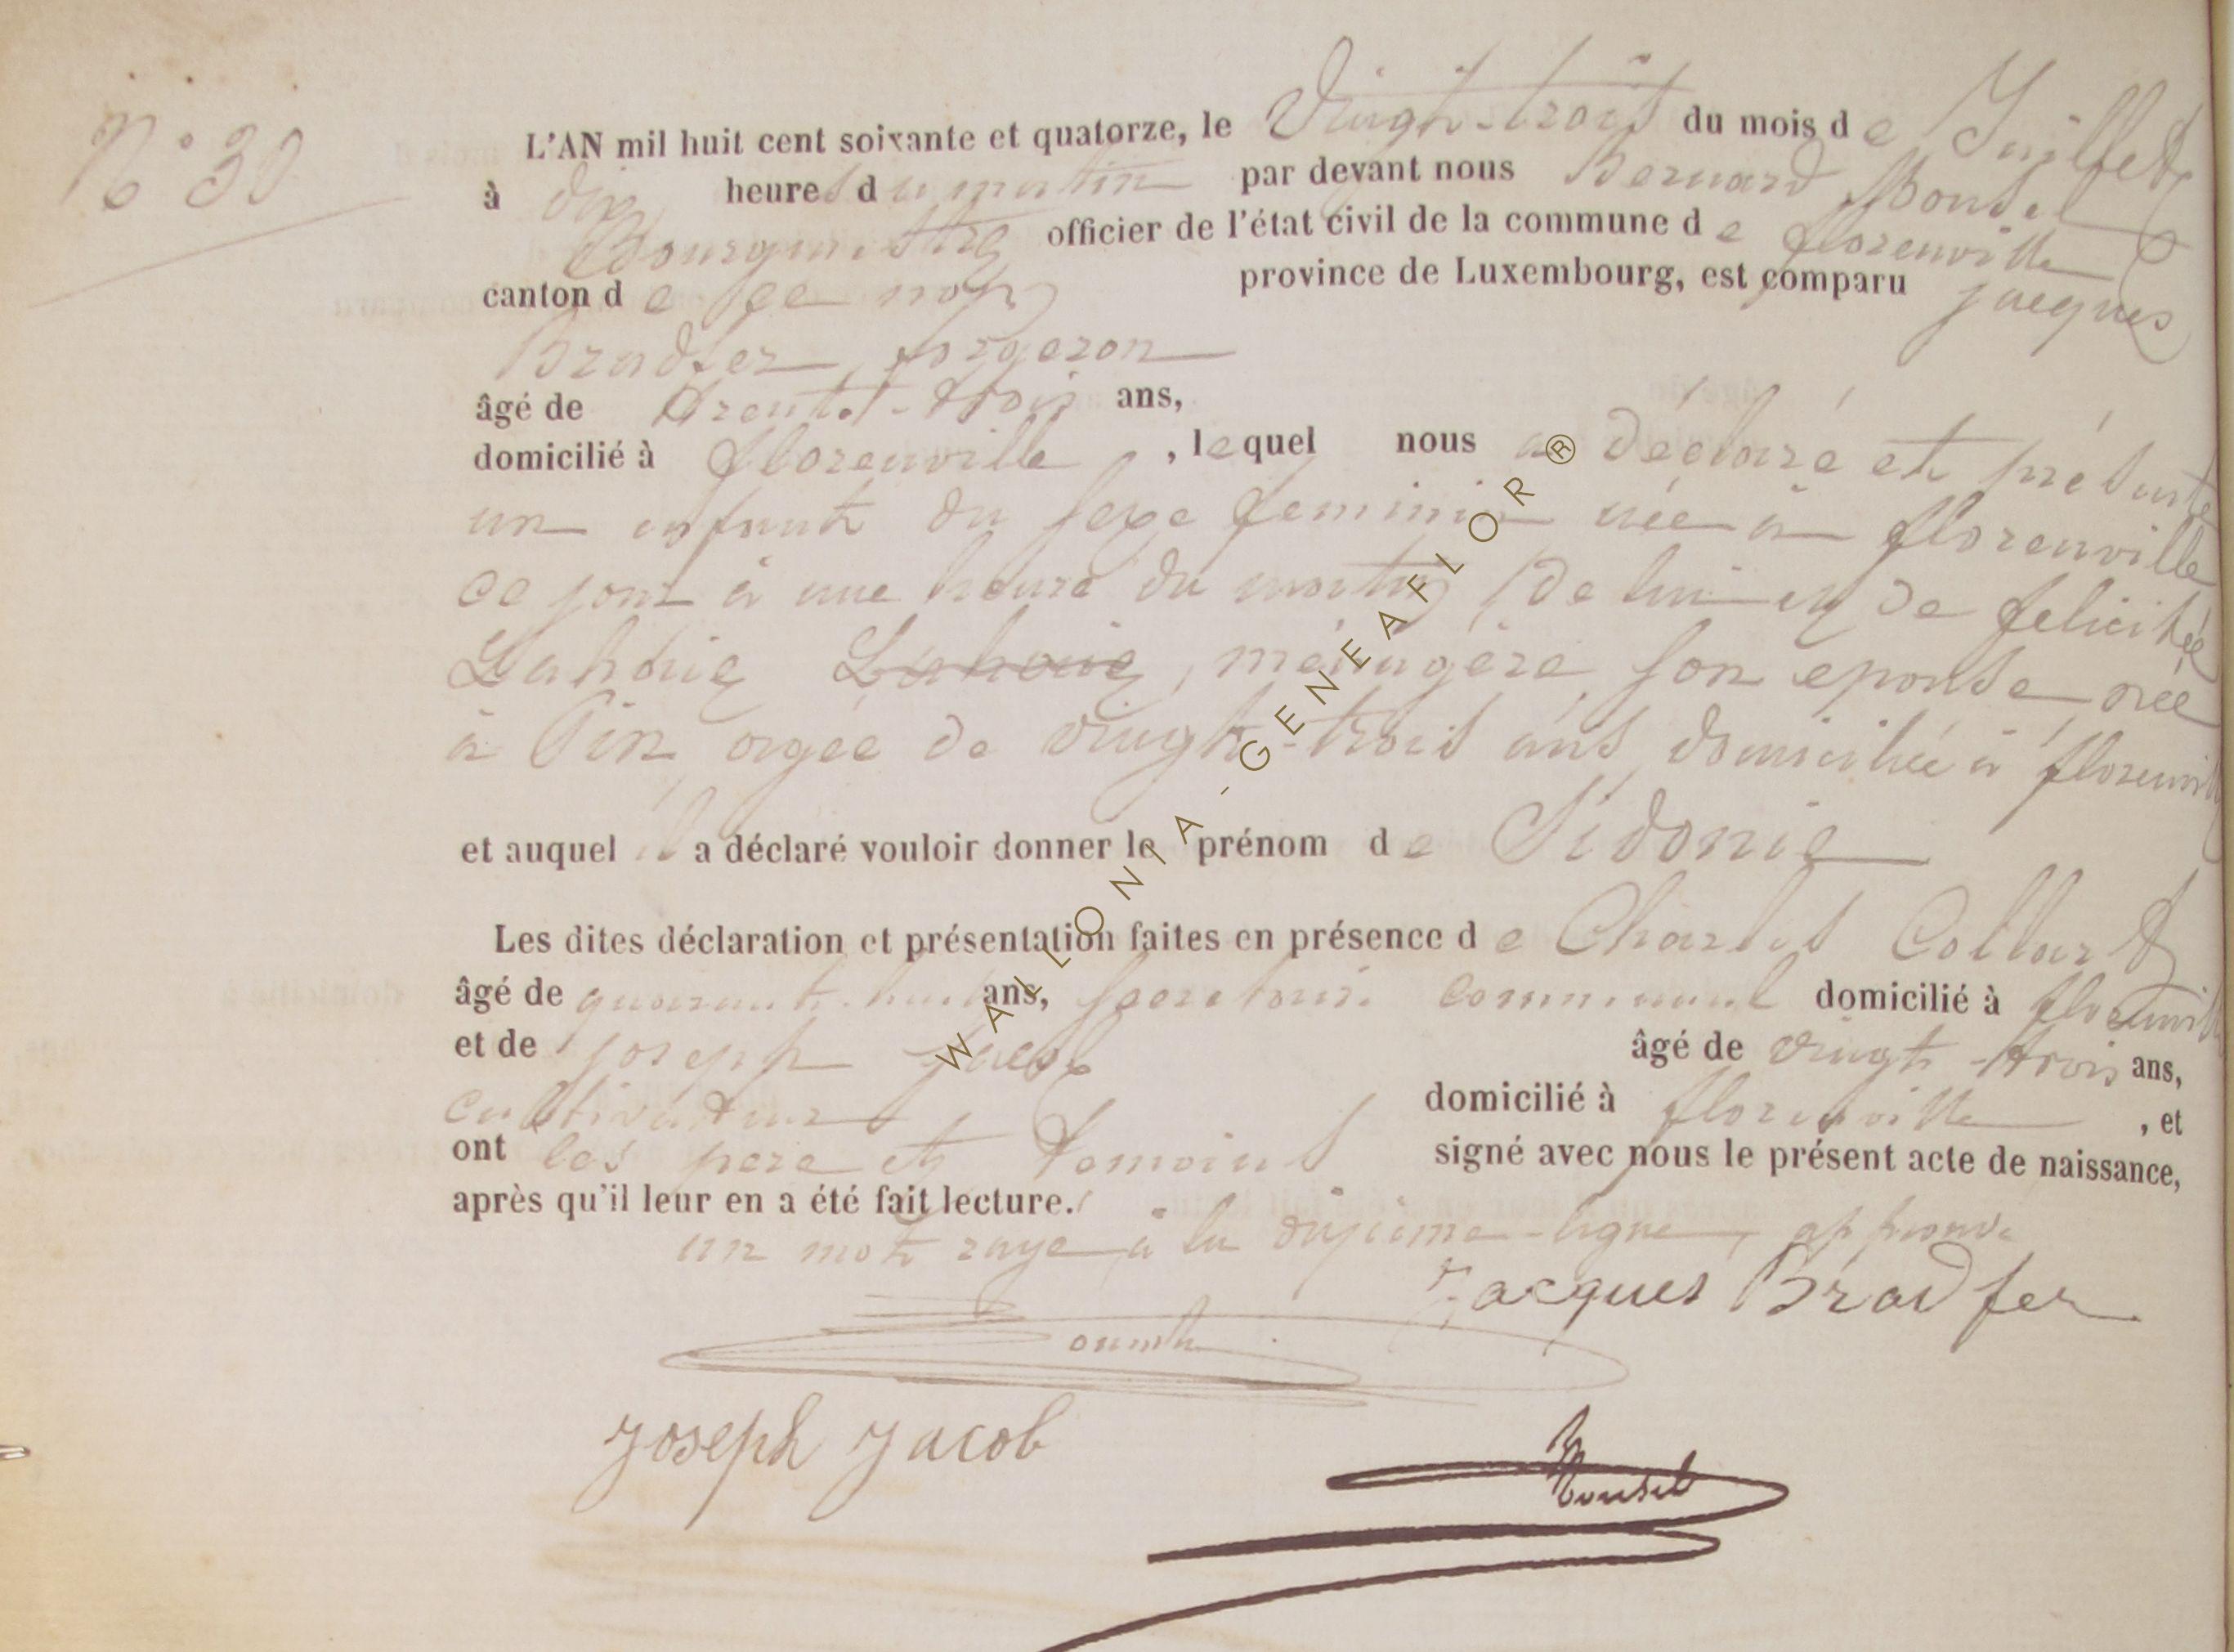 N° 30
L'AN mil huit cent soixante et quatorze, le Vingt-trois du mois de Juillet
à dix heures du matin par devant nous Bernard Monsel
Bourgmestre officier de l'état civil de la commune de florenville
canton de ce nom province de Luxembourg, est comparu jacques
Bradfer, forgeron
âgé de trente-trois ans,
domicilié à florenville, lequel nous a déclaré et présenté
un enfant du sexe feminin née à florenville
ce jour à une heure du matin, de lui et de felicitée
Lahaie Lahaie, ménagère, son epouse née
à Pin, agée de vingt-trois ans, domiciliée à florenville
et auquel il a déclaré vouloir donner le prénom de Sidonie
Les dites déclaration et présentation faites en présence de Charles Collart
âgé de quarante-huit ans, secretaire communal domicilié à florenville
et de joseph jacob âgé de vingt-trois ans,
cultivateur domicilié à florenville, et
ont les pere et temoins signé avec nous le présent acte de naissance,
après qu'il leur en a été fait lecture.
un mot rayé à la dixieme ligne, approuvé
Jacques Bradfer
Joseph Jacob
Monsel
WALLONIA-GENEAFLOR®